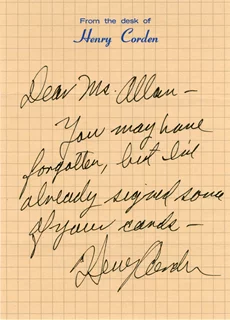 From the desk of
Henry Corden
Dear Ms. Allan -
You may have
forgotten, but I've
already signed some
of your cards -
Henry Corden